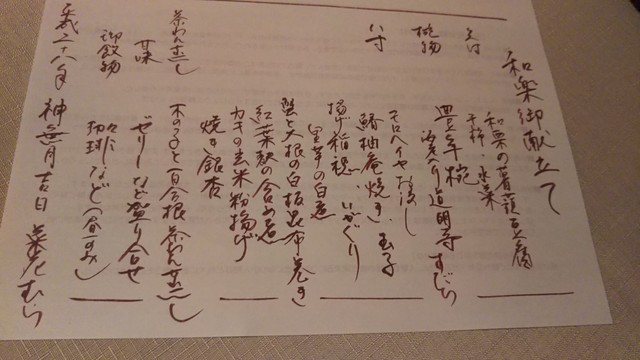 和楽御献立て
先付
和栗の薯蕷豆腐
干柿・水菜
椀物
豊年椀
入り道明寺 すだち
八寸
モロヘイヤお浸し
鰆柚庵焼き・玉子
揚げ稲穂・いがぐり
里芋の白煮
蟹と大根の白板昆布巻き
紅葉麩の含め煮
カキの玄米粉揚げ
焼き銀杏
茶わん蒸し
木の子と百合根茶わん蒸し
ゼリーなど盛り合せ
御飲物
珈琲など(昼のみ)
平成二十八年 神無月吉日